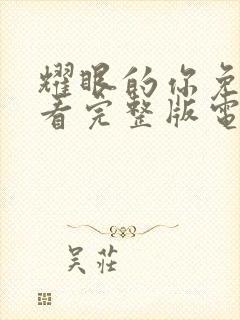 耀眼的你免
看完整版電
吴莊